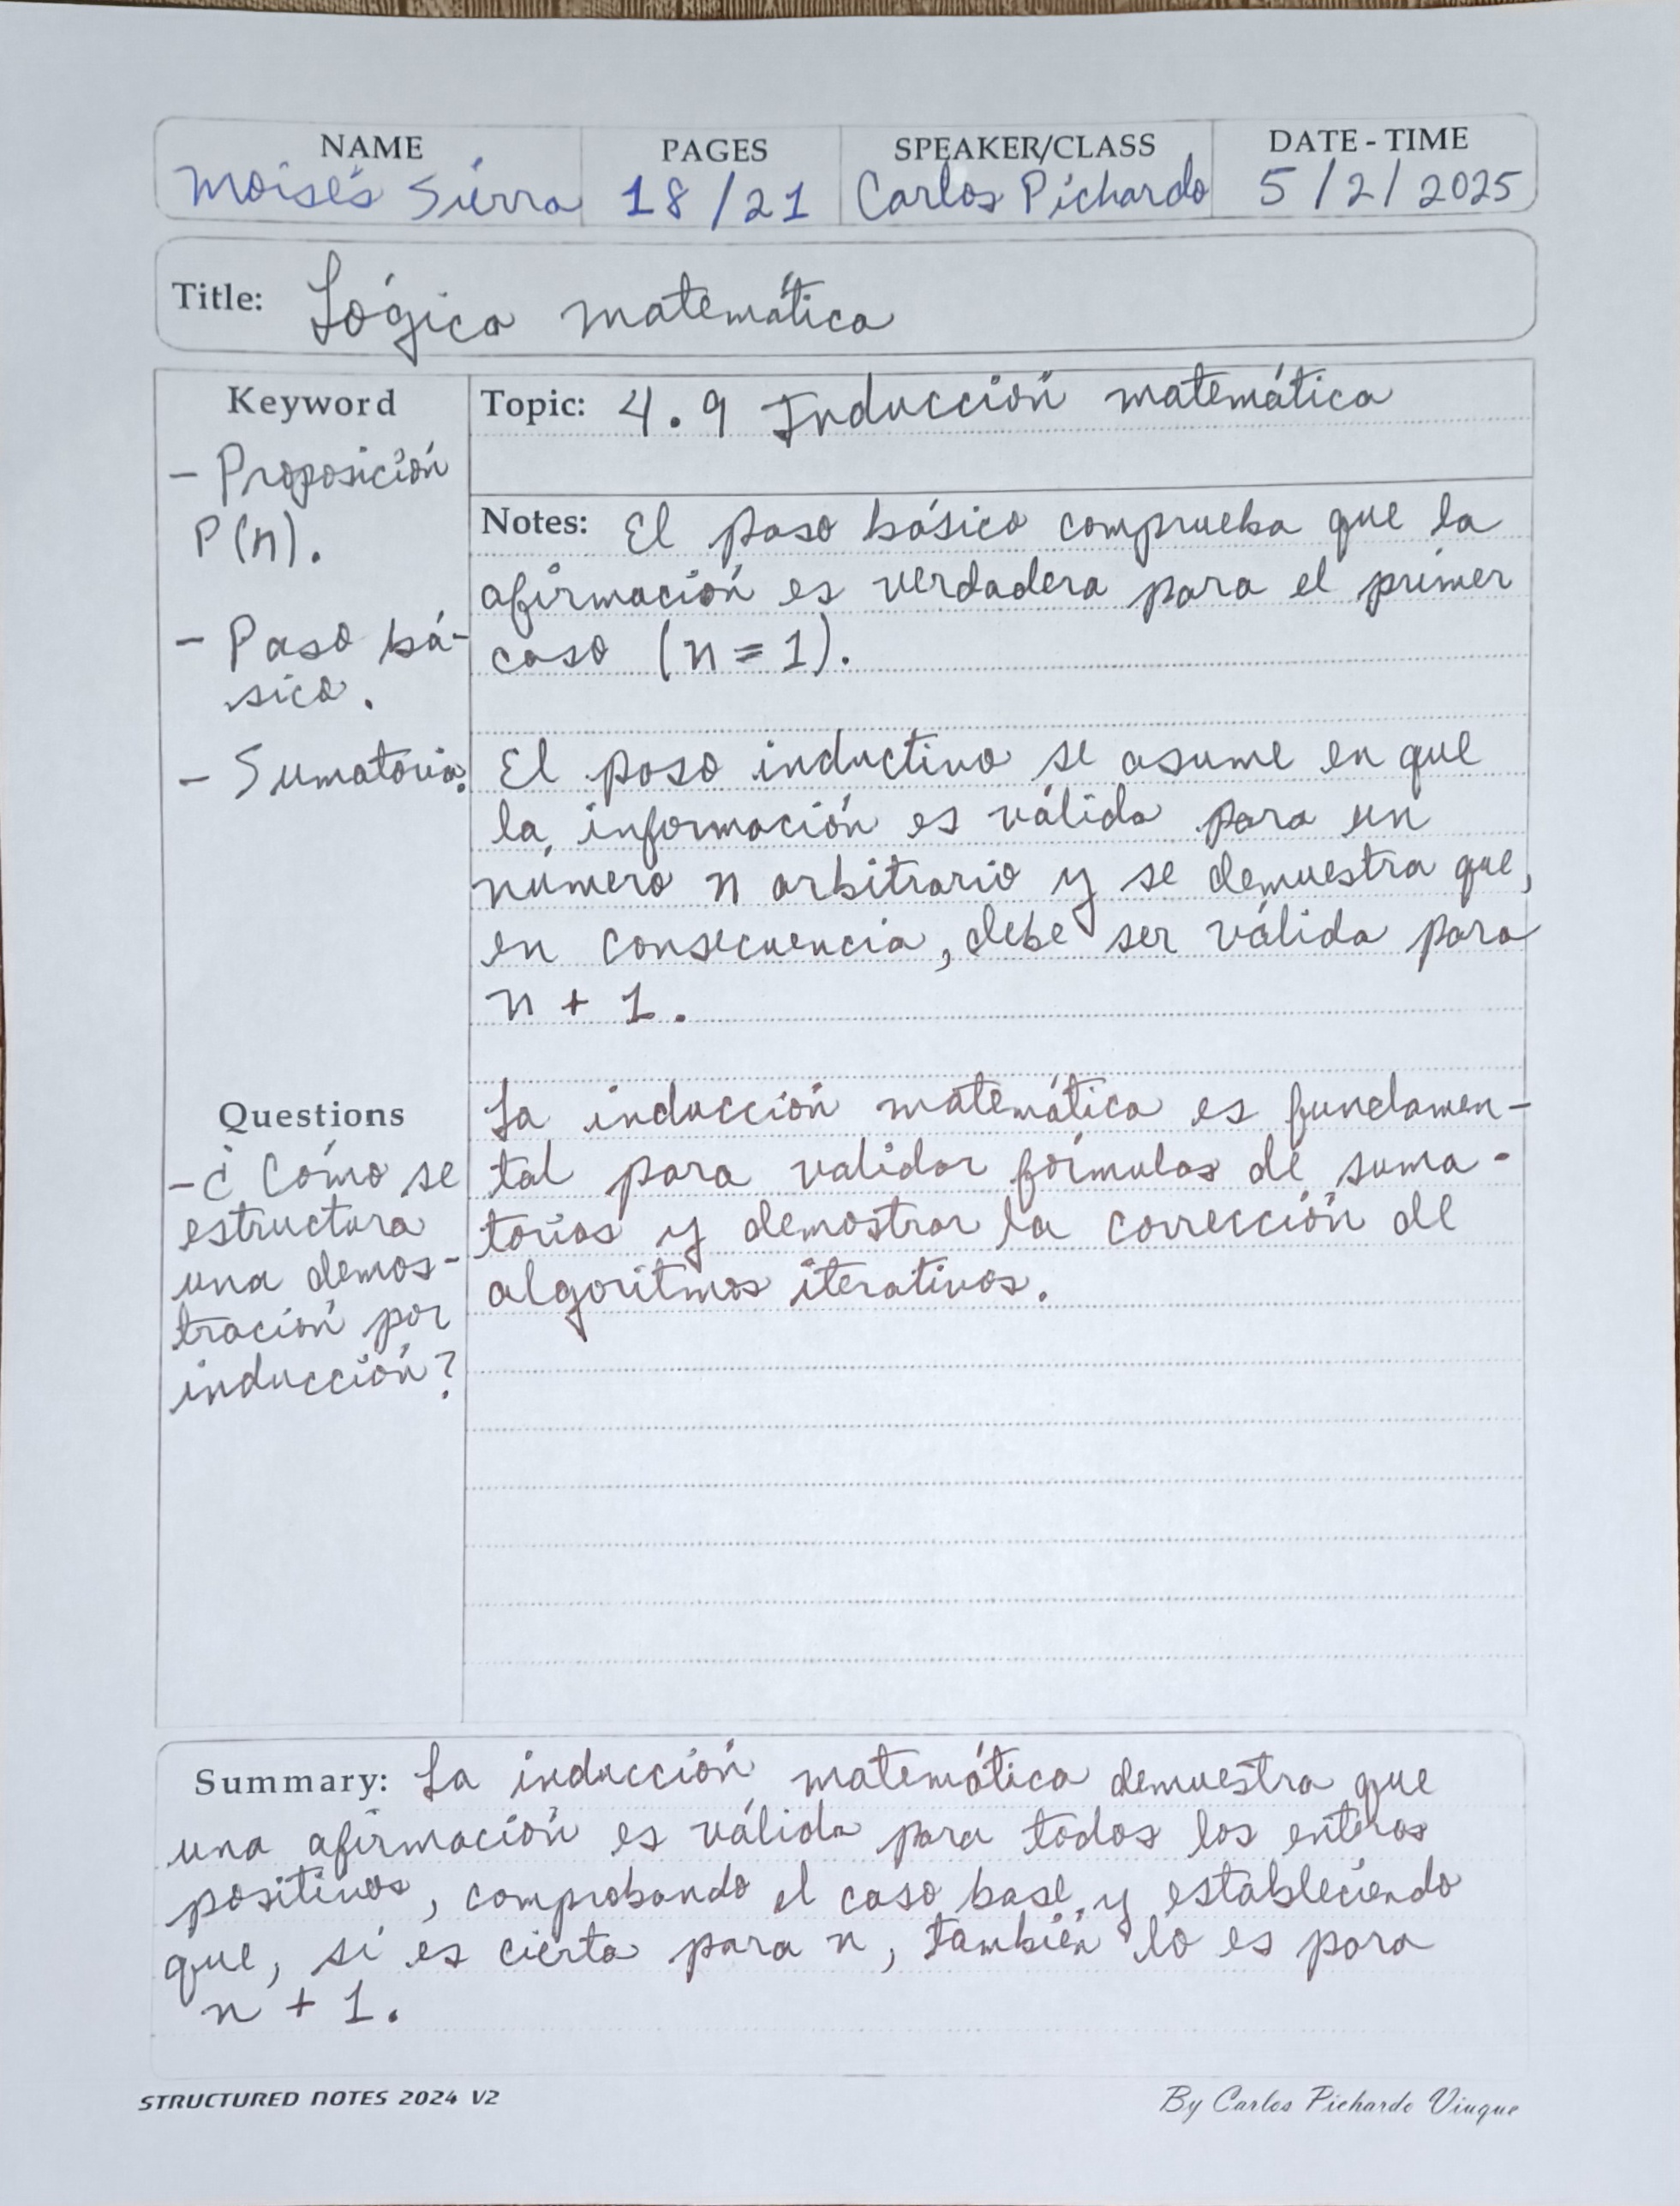 NAME PAGES SPEAKER/CLASS DATE - TIME
Moisés Sierra 18/21 Carlos Pichardo 5/2/2025
Title: Lógica matemática
Keyword
- Proposición
P(n).
- Paso bá-
sico.
- Sumatoria.
Questions
- ¿Cómo se
estructura
una demos-
tración por
inducción?
Topic: 4.9 Inducción matemática
Notes: El paso básico comprueba que la
afirmación es verdadera para el primer
caso (n = 1).
El paso inductivo se asume en que
la información es válida para un
número n arbitrario y se demuestra que,
en consecuencia, debe ser válida para
n + 1.
La inducción matemática es fundamen-
tal para validar fórmulas de suma-
torias y demostrar la corrección de
algoritmos iterativos.
Summary: La inducción matemática demuestra que
una afirmación es válida para todos los enteros
positivos, comprobando el caso base y estableciendo
que, si es cierta para n, también lo es para
n + 1.
STRUCTURED NOTES 2024 V2 By Carlos Pichardo Viuque